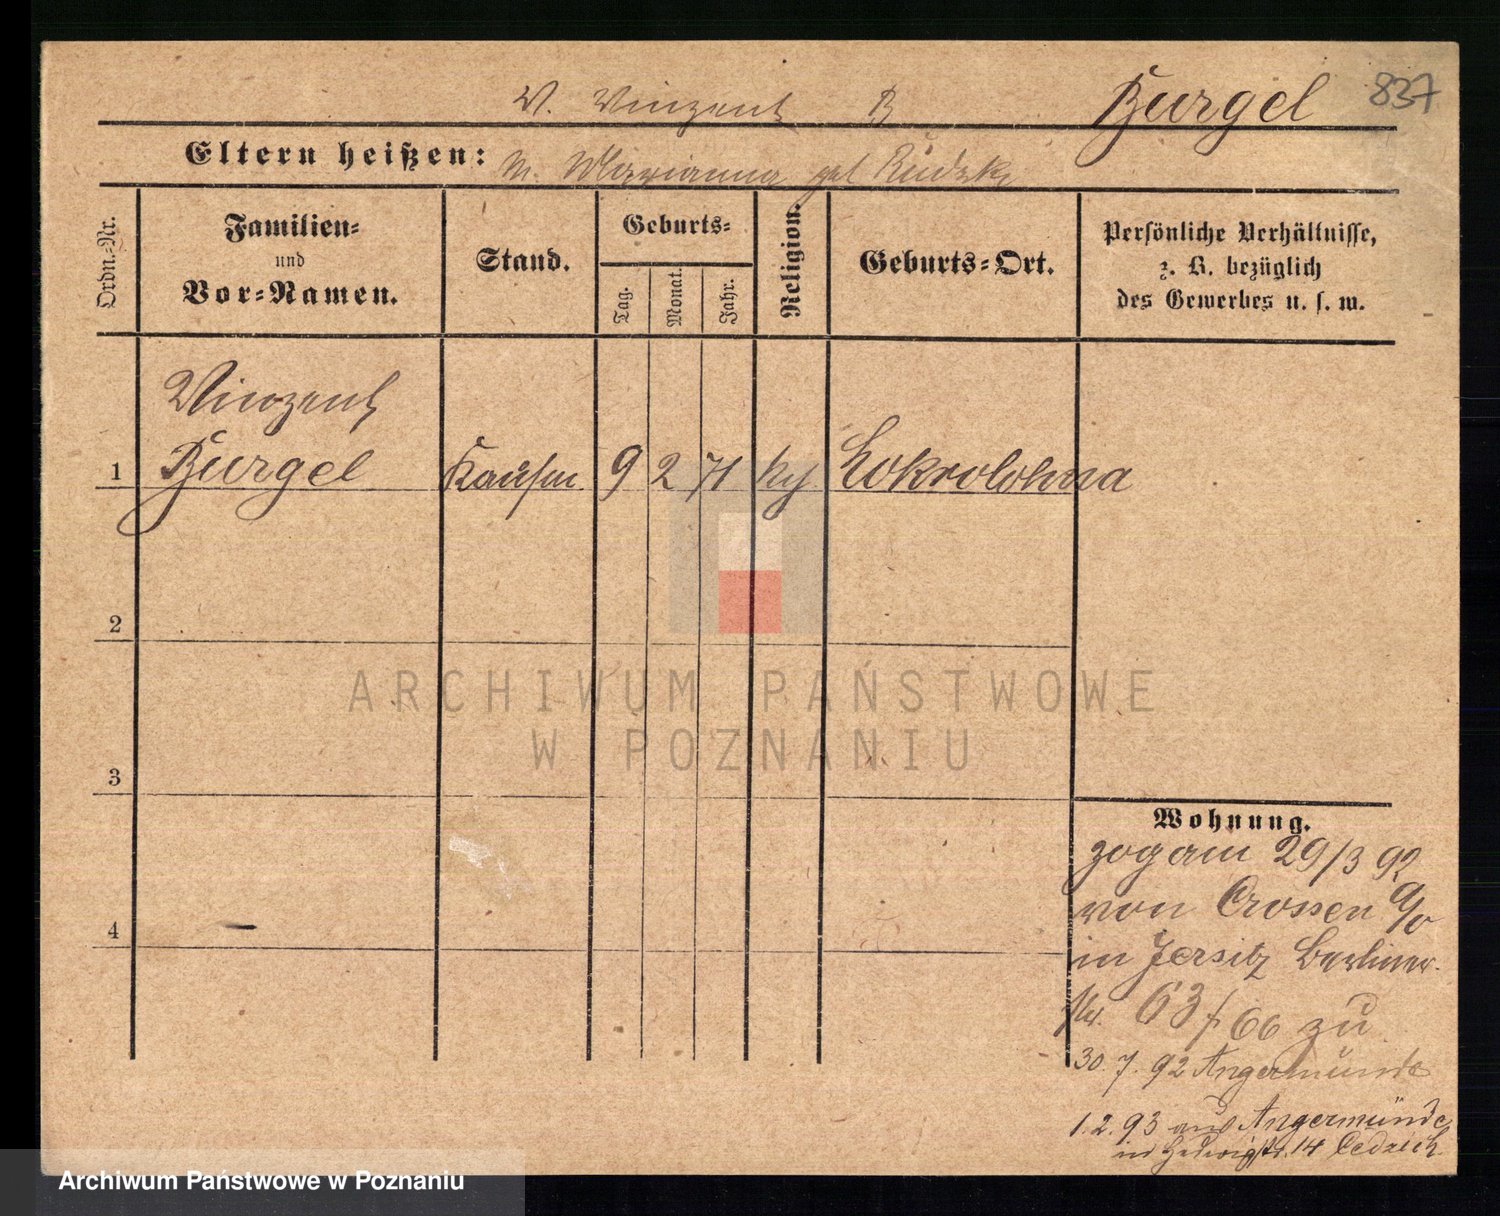 V. Vinzent B Burgel 837
Eltern heißen: M. Marianna geb Rudzka
Ordn.-Nr.
Familien-
und
Vor-Namen.
Stand.
Geburts-
Tag.
Monat.
Jahr.
Religion.
Geburts-Ort.
Persönliche Verhältnisse,
z. B. bezüglich
des Gewerbes u. s. w.
Vinzent
1 Burgel Kaufm 9 2 71 kg
2
ARCHIWUM PAŃSTWOWE
W POZNANIU
3
4
Wohnung.
zog am 29/3 92
von Crossen a/o
in Jersitz Berliner-
str. 63/66 zu
30. 7. 92 Angermünde
1. 2. 93 aus Angermünde
in Hedwigstr. 14
Archiwum Państwowe w Poznaniu